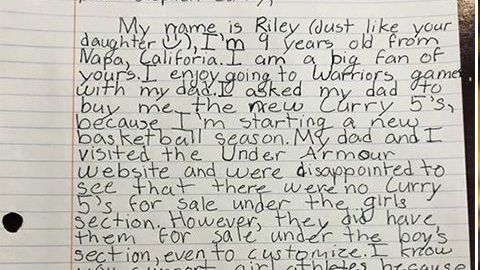 Stephen Curry,
My name is Riley (Just like your
daughter ☺), I'm 9 years old from
Napa, Califoria. I am a big fan of
yours. I enjoy going to Warriors games
with my dad. I asked my dad to
buy me the new Curry 5's,
because I'm starting a new
basketball season. My dad and I
visited the Under Armour
website and were disappointed to
see that there were no Curry
5's for sale under the girls
section. However, they did have
them for sale under the boy's
section, even to customize. I know
you support girl athletes because